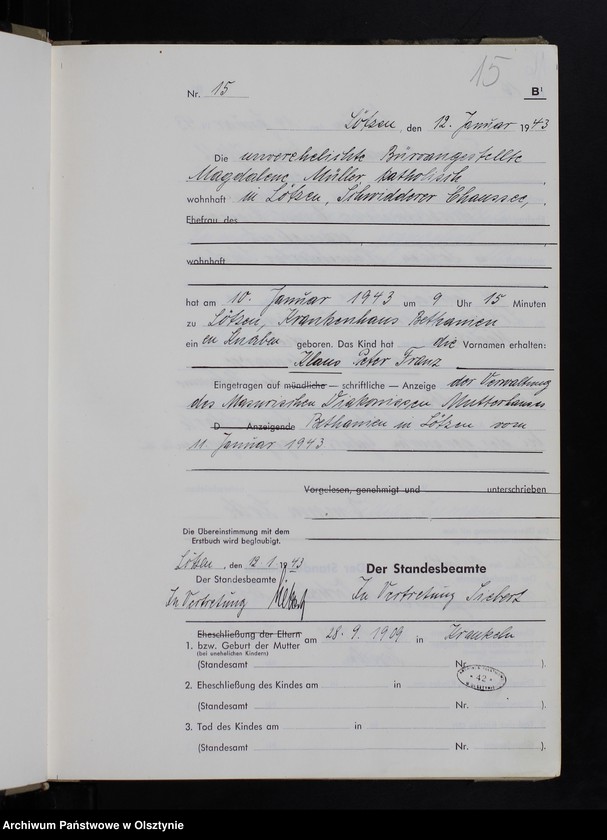 15
Nr. 15 B¹
Lötzen, den 12. Januar 1943
Die unverehelichte Büroangestellte
Magdalene Müller, katholisch
wohnhaft in Lötzen, Schwidderer Chaussee,
Ehefrau des
wohnhaft
hat am 10. Januar 1943 um 9 Uhr 15 Minuten
zu Lötzen, Krankenhaus Bethanien
ein en Knaben geboren. Das Kind hat die Vornamen erhalten:
Klaus Peter Franz
Eingetragen auf mündliche — schriftliche — Anzeige der Verwaltung
des Masurischen Diakonissen Mutterhauses
D Anzeigende Bethanien in Lötzen vom
11. Januar 1943
Vorgelesen, genehmigt und unterschrieben
Die Übereinstimmung mit dem
Erstbuch wird beglaubigt.
Lötzen, den 12. 1. 1943
Der Standesbeamte
Der Standesbeamte
In Vertretung
In Vertretung Siebert
Eheschließung der Eltern
1. bzw. Geburt der Mutter am 28. 9. 1909 in
(bei unehelichen Kindern)
(Standesamt Nr. ).
2. Eheschließung des Kindes am in
42
(Standesamt Nr. ).
3. Tod des Kindes am in
(Standesamt Nr. ).
Archiwum Państwowe w Olsztynie